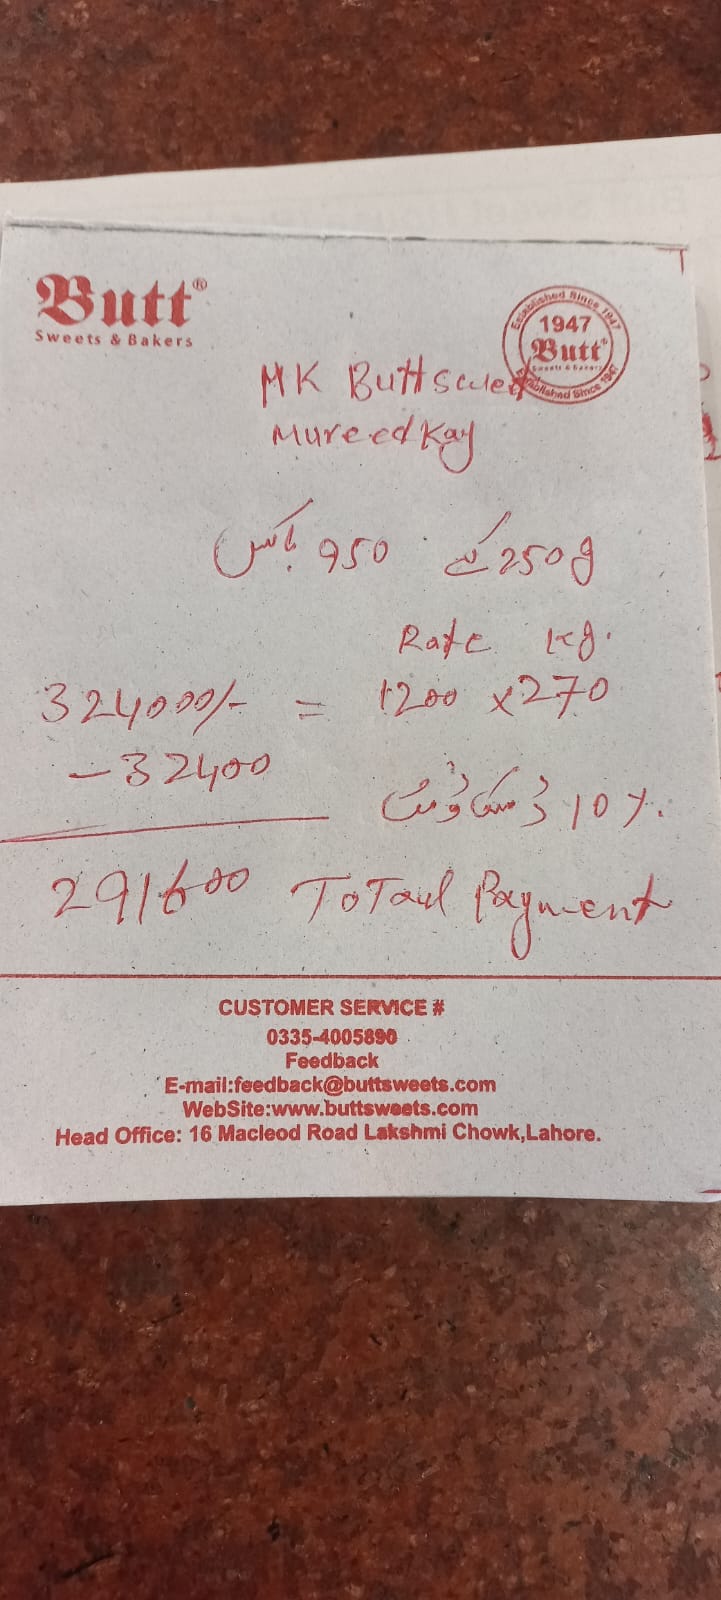 Butt®
Sweets & Bakers
Established Since 1947
1947
Butt
Sweets & Bakers
Established Since 1947
MK Butt sweet
Mureedkay
250g کے 950 باکس
Rate kg.
324000/- = 1200 x 270
- 32400
10%. ڈسکاؤنٹ
291600 ToTaul Payment
CUSTOMER SERVICE #
0335-4005890
Feedback
E-mail:feedback@buttsweets.com
WebSite:www.buttsweets.com
Head Office: 16 Macleod Road Lakshmi Chowk,Lahore.